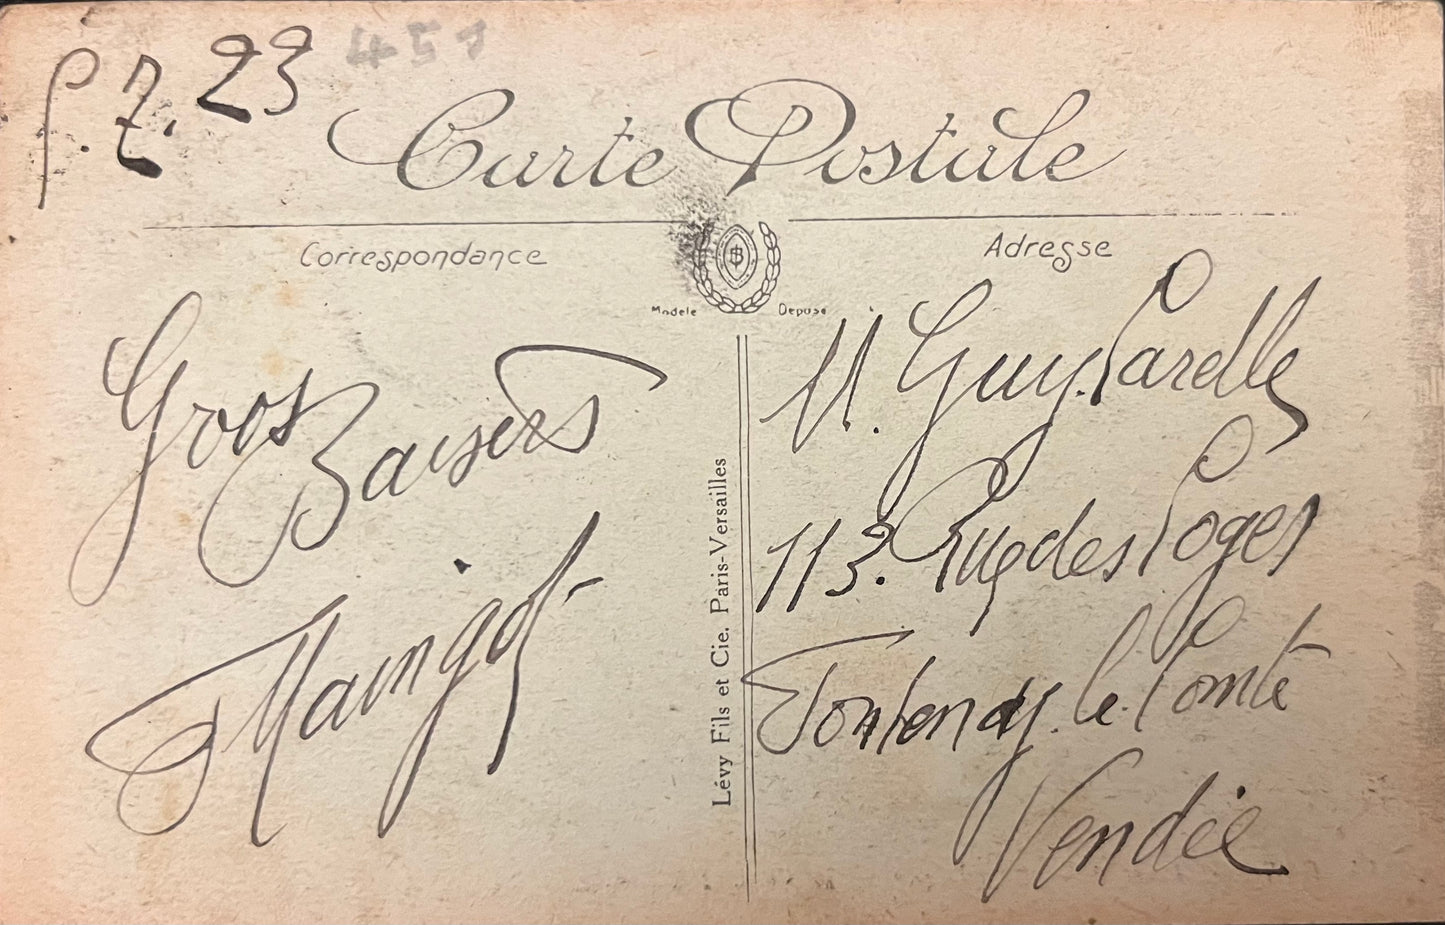 P. Z. 23 451
Carte Postale
Correspondance
Adresse
Modele Deposé
Gros
Baisers
Maingot
Lévy Fils et Cie. Paris-Versailles
M. Guy. Parelle
113. Rue des Loges
Fontenay. le. Comte
Vendée